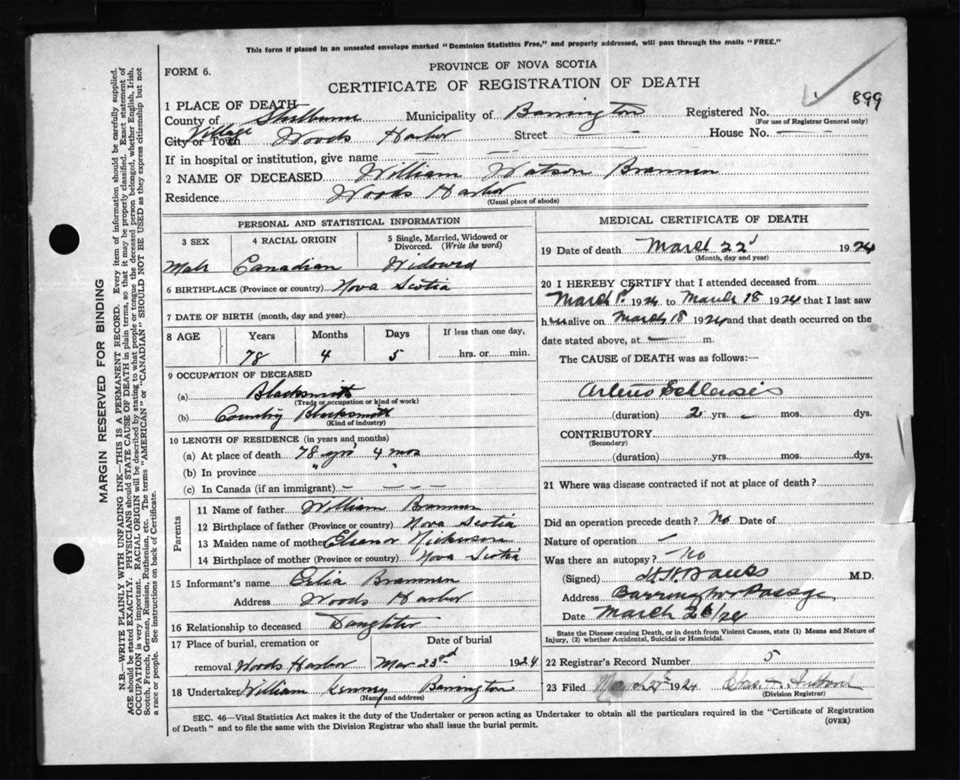 This form if placed in an unsealed envelope marked "Dominion Statistics Free," and properly addressed, will pass through the mails "FREE."
FORM 6.
PROVINCE OF NOVA SCOTIA
CERTIFICATE OF REGISTRATION OF DEATH
899
1 PLACE OF DEATH
County of Shelburne Municipality of Barrington Registered No.
(For use of Registrar General only)
Village
City or Town Woods Harbor Street — House No. —
If in hospital or institution, give name —
2 NAME OF DECEASED William Watson Brannen
Residence Woods Harbor
(Usual place of abode)
PERSONAL AND STATISTICAL INFORMATION
3 SEX 4 RACIAL ORIGIN 5 Single, Married, Widowed or Divorced. (Write the word)
Male Canadian Widowed
6 BIRTHPLACE (Province or country) Nova Scotia
7 DATE OF BIRTH (month, day and year)
8 AGE Years Months Days If less than one day,
78 4 5 hrs. or min.
9 OCCUPATION OF DECEASED
(a) Blacksmith
(Trade or occupation or kind of work)
(b) Country Blacksmith
(Kind of industry)
10 LENGTH OF RESIDENCE (in years and months)
(a) At place of death 78 yrs 4 mos
(b) In province " "
(c) In Canada (if an immigrant) — — — —
Parents
11 Name of father William Brannen
12 Birthplace of father (Province or country) Nova Scotia
13 Maiden name of mother Eleanor Nickerson
14 Birthplace of mother (Province or country) Nova Scotia
15 Informant's name Celia Brannen
Address Woods Harbor
16 Relationship to deceased Daughter
17 Place of burial, cremation or Date of burial
removal Woods Harbor Mar 23rd 1924
18 Undertaker William Kenney Barrington
(Name and address)
MEDICAL CERTIFICATE OF DEATH
19 Date of death March 22 1924
(Month, day and year)
20 I HEREBY CERTIFY that I attended deceased from
March 1924 to March 18 1924 that I last saw
h alive on March 18 1924 and that death occurred on the
date stated above, at — m.
The CAUSE of DEATH was as follows:—
(duration) 2 yrs. — mos. dys.
CONTRIBUTORY
(Secondary)
(duration) yrs. mos. dys.
21 Where was disease contracted if not at place of death?
Did an operation precede death? No Date of
Nature of operation —
Was there an autopsy? — No
(Signed) Banks M.D.
Address Barrington Passage
Date March 26/24
State the Disease causing Death, or in death from Violent Causes, state (1) Means and Nature of
Injury, (2) whether Accidental, Suicidal or Homicidal.
22 Registrar's Record Number 5
23 Filed 1924
(Division Registrar)
SEC. 46—Vital Statistics Act makes it the duty of the Undertaker or person acting as Undertaker to obtain all the particulars required in the "Certificate of Registration
of Death" and to file the same with the Division Registrar who shall issue the burial permit.
(OVER)
MARGIN RESERVED FOR BINDING
N.B.—WRITE PLAINLY WITH UNFADING INK—THIS IS A PERMANENT RECORD. Every item of information should be carefully supplied.
AGE should be stated EXACTLY. PHYSICIANS should STATE CAUSE OF DEATH in plain terms, so that it may be properly classified. Exact statement of
OCCUPATION is very important. RACIAL ORIGIN will be described by stating to what people or tongue the deceased person belonged, whether English, Irish,
Scotch, French, German, Russian, Ruthenian, etc. The terms "AMERICAN" or "CANADIAN" SHOULD NOT BE USED as they express citizenship but not
a race or people. See instructions on back of Certificate.